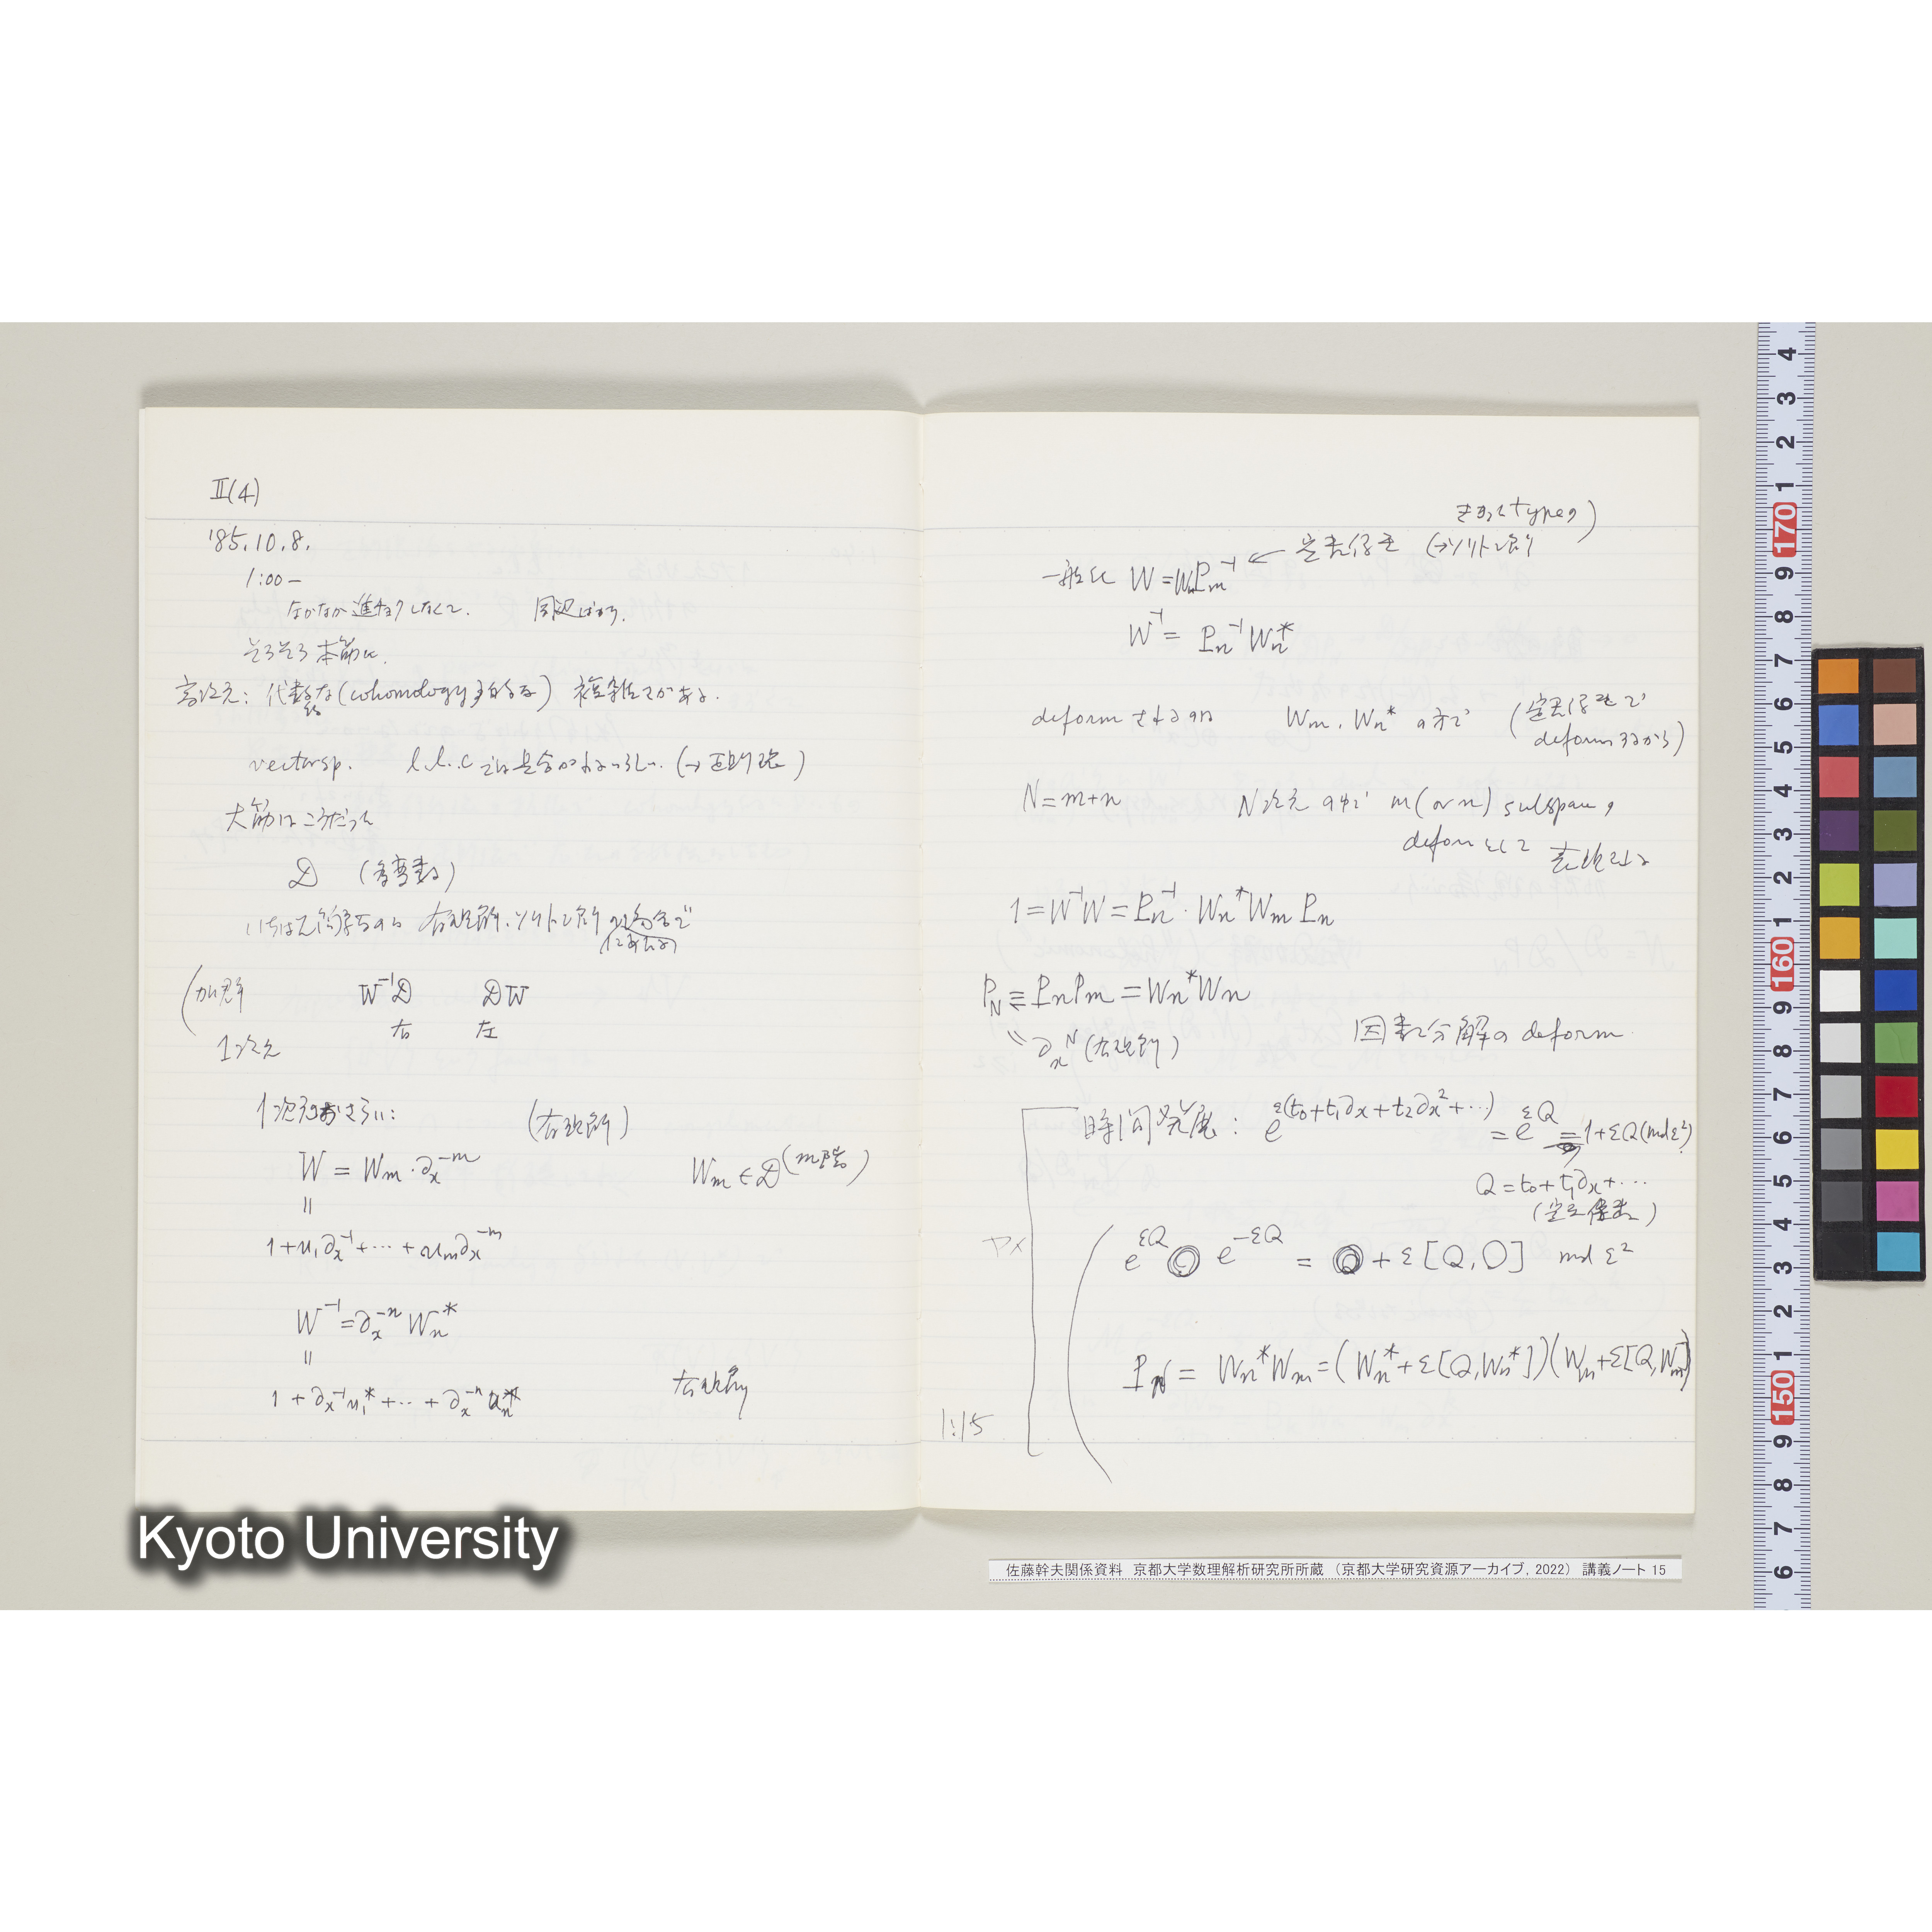 II(4)
'85.10.8.
1:00–
なかなか進まなくて. 周辺ばかり.
そろそろ本筋に.
高次元: 代数的な(cohomology的な) 複雑さがある.
vector sp. l.l.c では具合がわるいらしい. (→ )
大筋はこうだった
𝒟 (多変数)
いちばん簡単なのは 有理解. ソリトン解 の場合で
(にあたる)
(加群 W⁻¹𝒟 𝒟W
右 左
1次元
1次元おさらい: (有理解)
W = Wm・∂x^{-m} Wm ∈ 𝒟^{(m階)}
=
1+u₁∂x^{-1}+⋯+um∂x^{-m}
W^{-1}=∂x^{-n} Wn*
=
1+∂x^{-1}u₁*+⋯+∂x^{-n}un*
有理解
type の)
一般に W = WmPm^{-1} ← 定数係数 (→ソリトン解
W^{-1} = Pn^{-1} Wn*
deform されるのは Wm, Wn* の方で (定数係数で
deform するから)
N=m+n N次元の中で m(or n) subspace の
deform として 表される
1=W^{-1}W=Pn^{-1}・Wn*Wm Pn
PN ≡ PnPm = Wn*Wn
〃 ∂x^N (有理解) 因数分解の deform.
時間発展: e^{ε(t₀+t₁∂x+t₂∂x²+⋯)} = e^{εQ} = 1+εQ (md ε²)
Q = t₀+t₁∂x+⋯
(定数係数)
e^{εQ} ○ e^{-εQ} = ○ + ε[Q,○] md ε²
PN = Wn*Wm = (Wn*+ε[Q,Wn*])(Wm+ε[Q,Wm])
1:15
Kyoto University
佐藤幹夫関係資料 京都大学数理解析研究所所蔵 (京都大学研究資源アーカイブ, 2022) 講義ノート 15
4
3
2
1
170
9
8
7
6
5
4
3
2
1
160
9
8
7
6
5
4
3
2
1
150
9
8
7
6